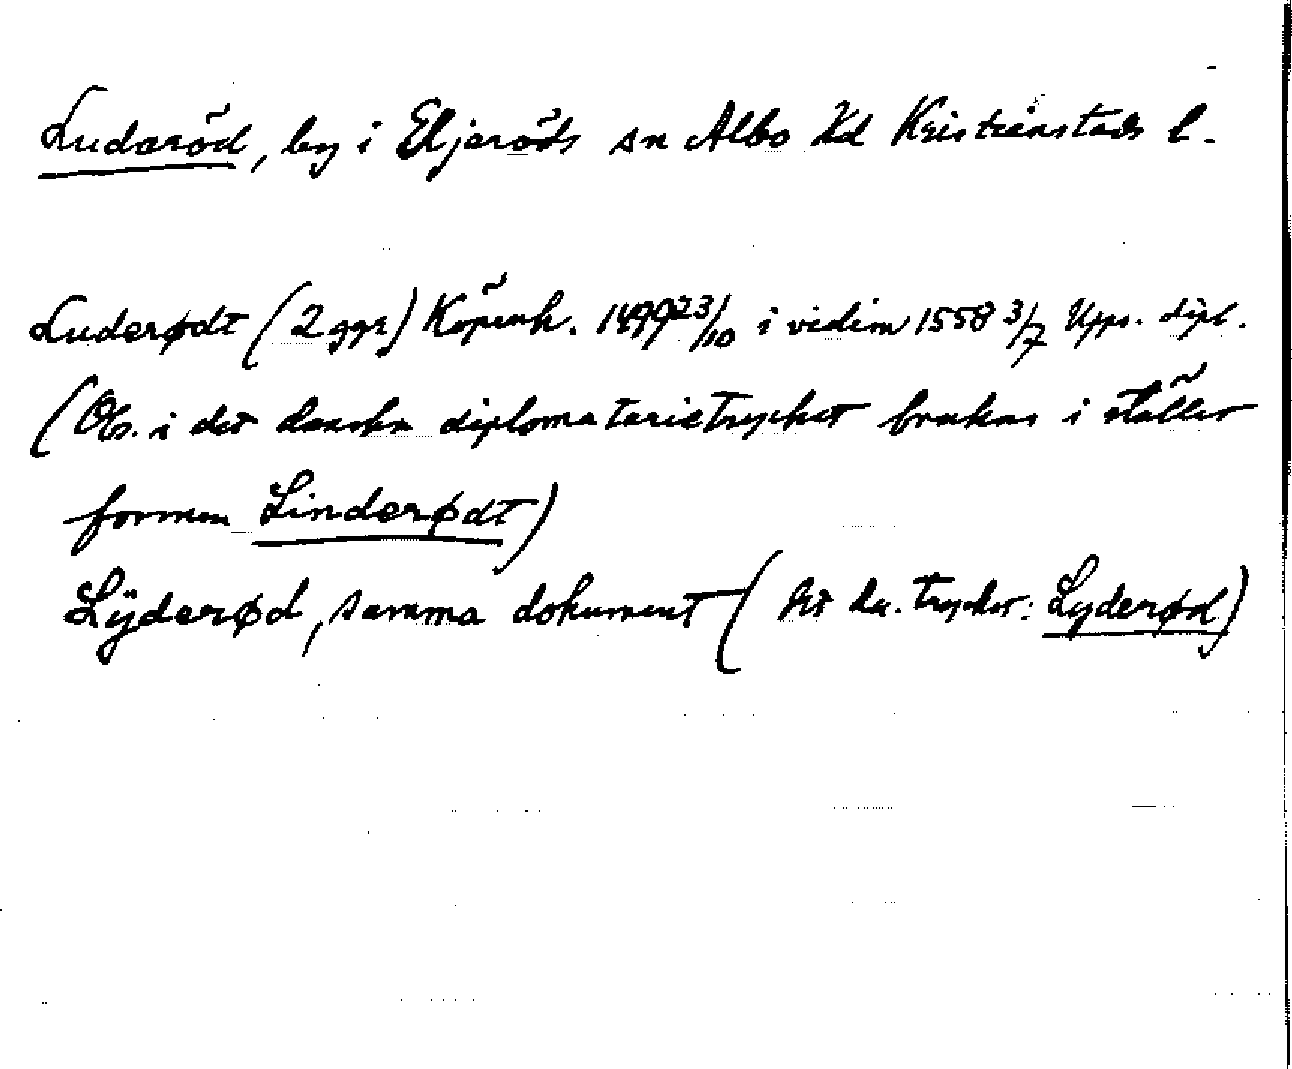 Ludaröd, by i Eljaröds sn Albo Hd Kristianstads l.
Luderødt (2 ggr) Köpenh. 1499 23/10 i vidim 1558 3/7 Upps. dipl.
(Obs. i det danska diplomatarietrycket brukas i stället
formen Linderødt)
Lÿderød, samma dokument (det da. trycket: Lyderød)